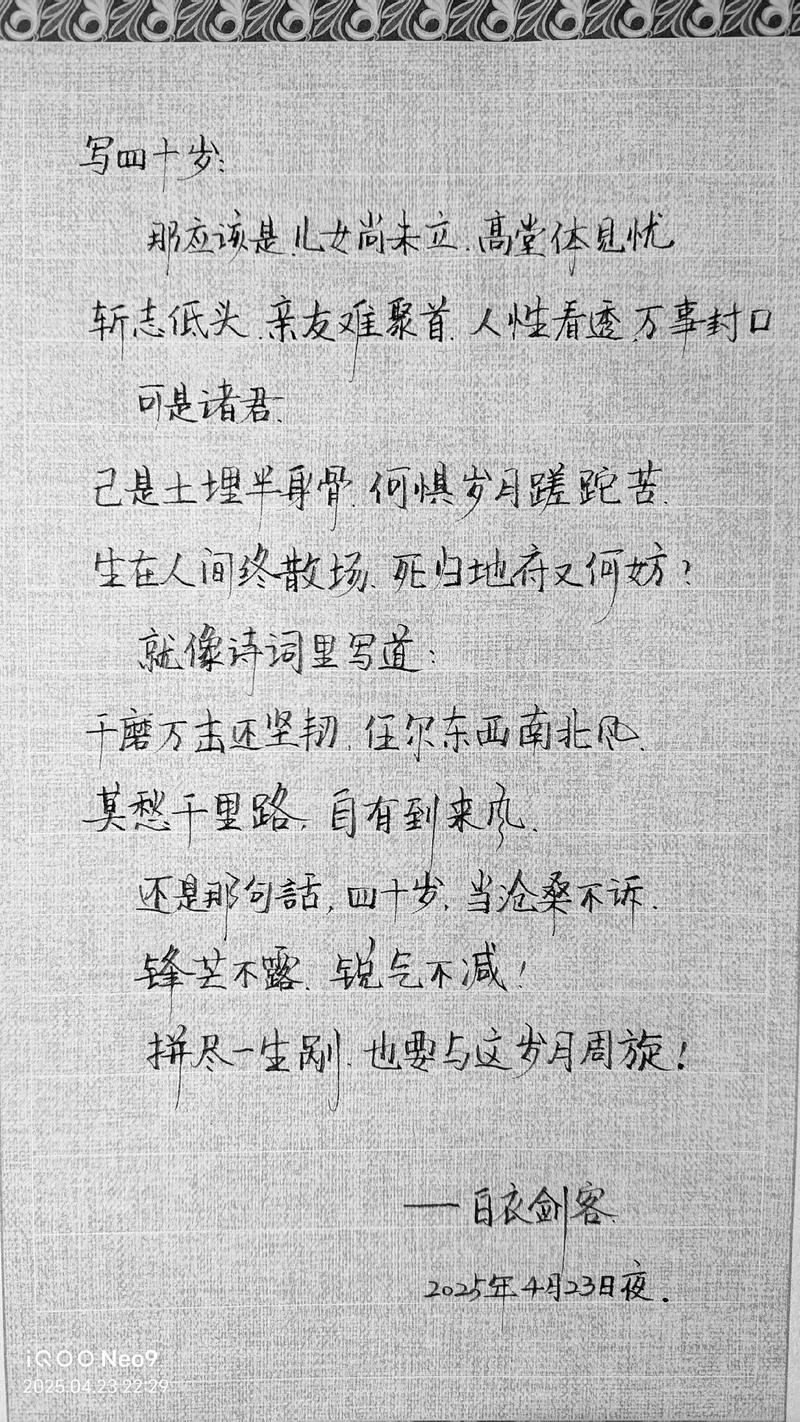 写四十岁:
那应该是儿女尚未立.高堂体见忧
斩志低头.亲友难聚首.人性看透.万事封口
可是诸君.
己是土埋半身骨.何惧岁月蹉跎苦.
生在人间终散场.死归地府又何妨?
就像诗词里写道:
千磨万击还坚韧.任尔东西南北风.
莫愁千里路.自有到来风.
还是那句話,四十岁.当沧桑不诉.
锋芒不露.锐气不减!
拼尽一生剐.也要与这岁月周旋!
——白衣剑客.
2025年4月23日夜.
iQOO Neo9
2025.04.23 22:29